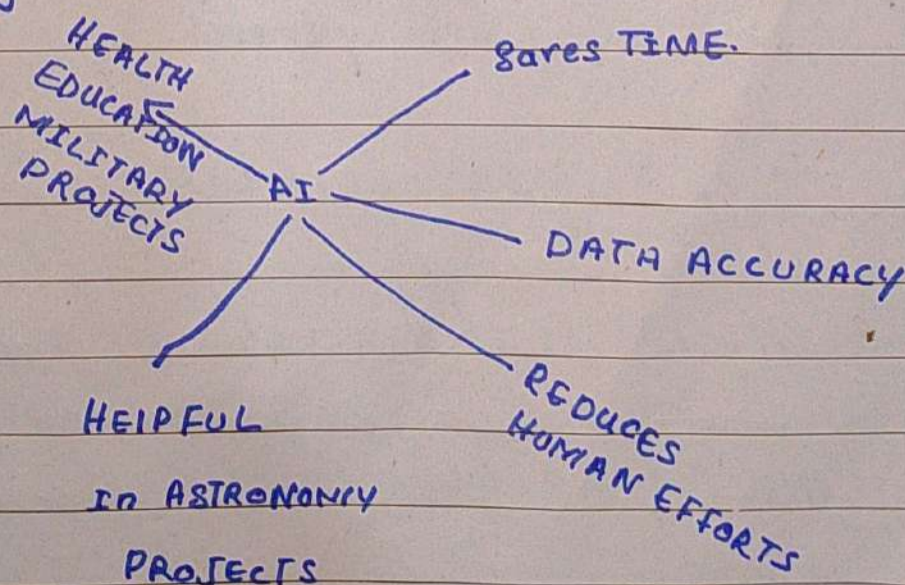 HEALTH
EDUCATION
MILITARY
PROJECTS
saves TIME.
AI
DATA ACCURACY
REDUCES
HUMAN EFFORTS
HElPFUL
In ASTRONONCY
PROJECTS